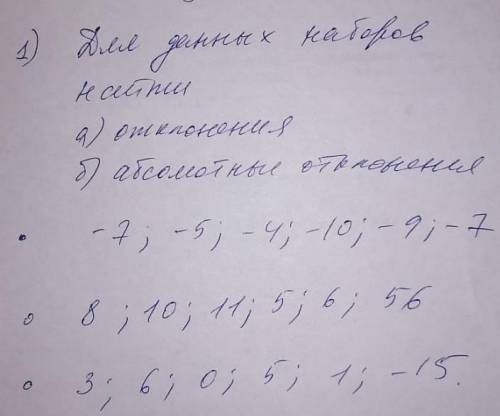 1) Для данных наборов
найти
а) отклонения
б) абсолютные отклонения
• -7; -5; -4; -10; -9; -7
• 8; 10; 11; 5; 6; 56
• 3; 6; 0; 5; 1; -15.